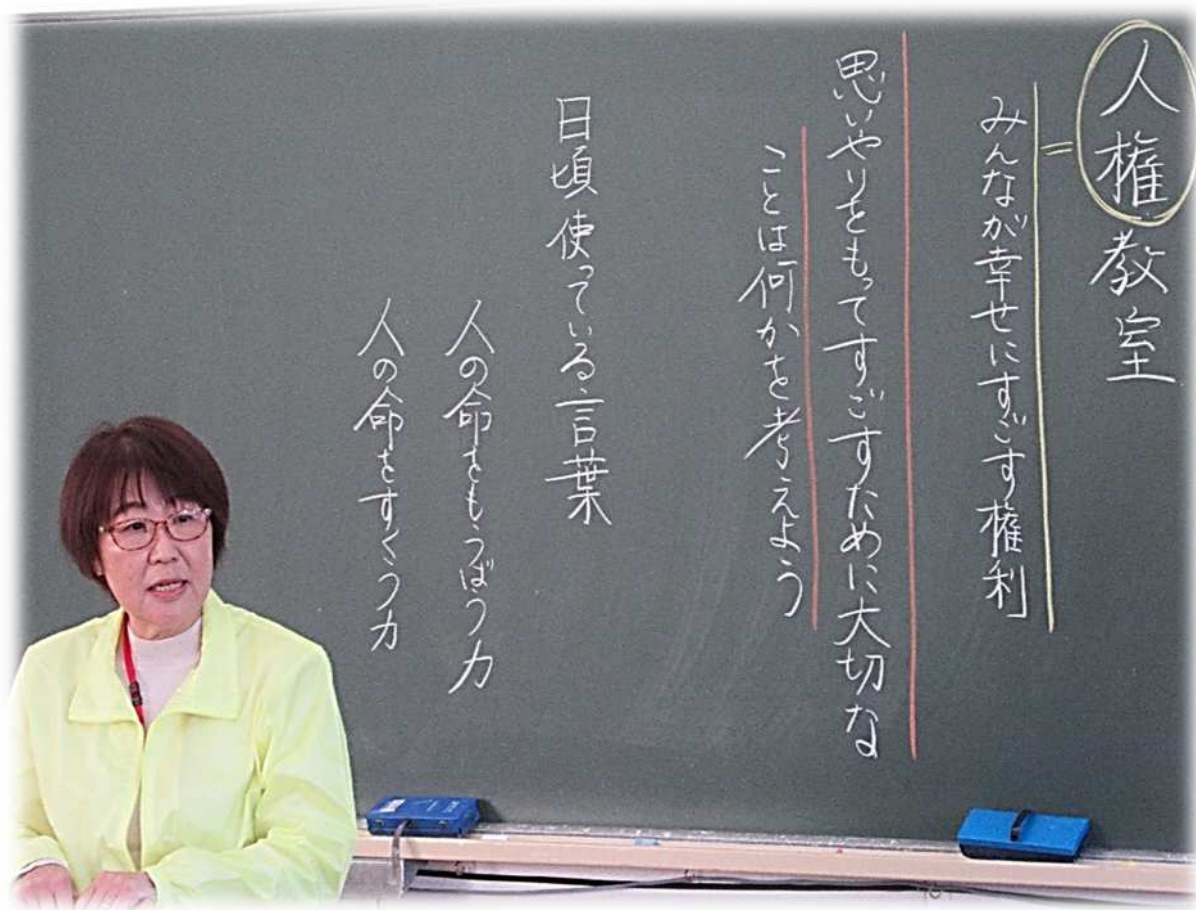 人権教室
＝みんなが幸せにすごす権利
思いやりをもってすごすために大切な
ことは何かを考えよう
日頃使っている言葉
人の命をもうばう力
人の命をすくう力